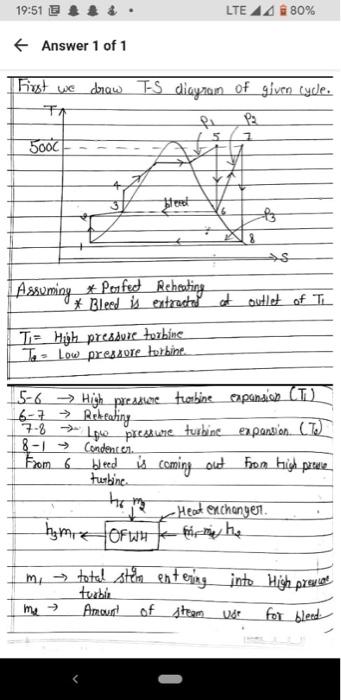 19:51 LTE 80%
← Answer 1 of 1
First we draw T-S diagram of given cycle.
T
P1 P2
500c
5 7
4
3 bleed
2 6 P3
1 8
S
Assuming * Perfect Reheating
* Bleed is extracted at outlet of T1
T1 = High pressure torbine
= Low pressure torbine.
5-6 → High pressure turbine expansion (T1)
6-7 → Reheating
7-8 → Low pressure turbine expansion.
8-1 → Condencer.
From 6 bleed is coming out from high
turbine.
h6 m2
Heat exchanger.
h3m1 ← OFWH ←
m1 → total stem entering into High
turbin
m2 → Amount of steam use for bleed